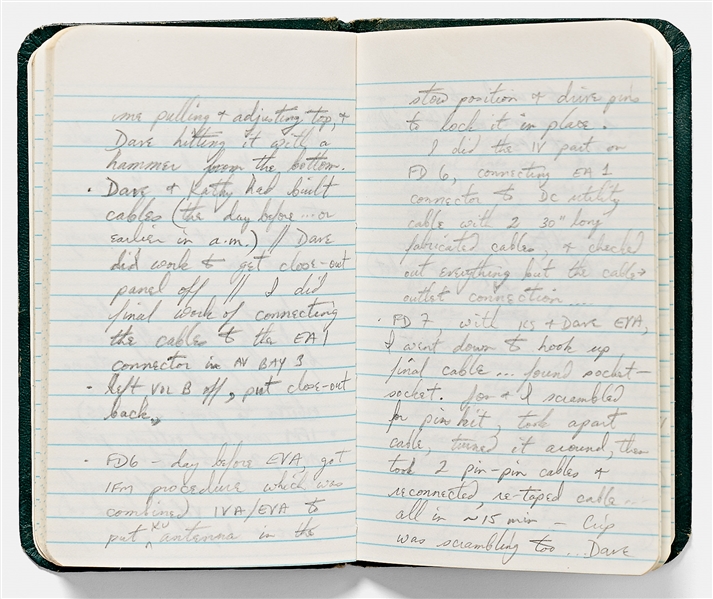 me pulling + adjusting top, +
Dave hitting it with a
hammer from the bottom.
• Dave + Kathy had built
cables (the day before ... or
earlier in a.m.) // Dave
did work to get close-out
panel off // I did
final work of connecting
the cables to the EA1
connector in AV BAY 3
• left VOL B off, put close-out
back.
• FD6 – day before EVA, got
IFM procedure which was
combined IVA/EVA to
put KU antenna in the
stow position + drive pins
to lock it in place.
I did the IV part on
FD 6, connecting EA1
connector to DC utility
cable with 2 30" long
fabricated cables + checked
out everything but the cable →
outlet connection ...
• FD 7, with KS + Dave EVA,
I went down to hook up
final cable ... found socket–
socket. Jon + I scrambled
for pin kit, took apart
cable, turned it around, then
took 2 pin-pin cables +
reconnected, re-taped cable ...
all in ~15 min – Crip
was scrambling too ... Dave